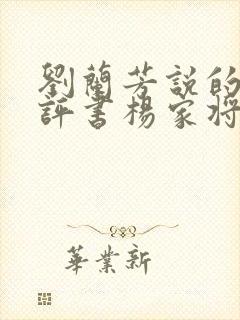 劉蘭芳説的
評書楊家将
華業新